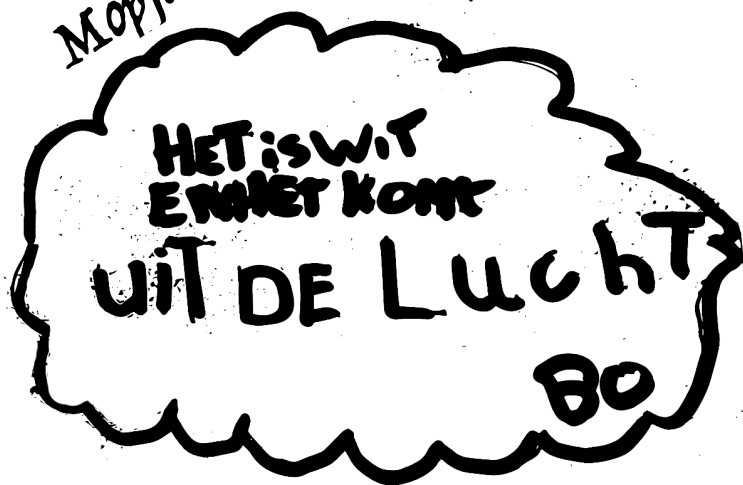 HET iS WiT
EN HET KOMT
uiT DE LuchT
BO